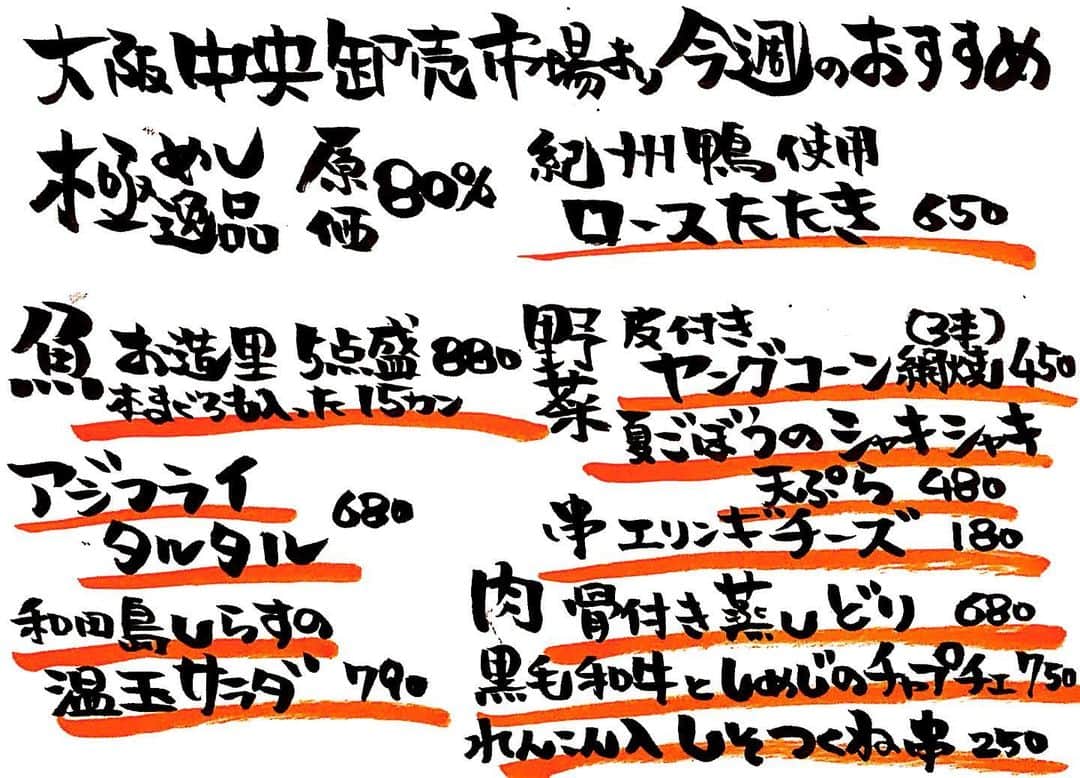 大阪中央卸売市場より今週のおすすめ
極めし逸品 原価80%
紀州鴨使用
ロースたたき 650
魚 お造里 5点盛 880
本まぐろも入った15カン
アジフライ
タルタル 680
和田島しらすの
温玉サラダ 790
野菜 皮付き
ヤングコーン網焼(3本) 450
夏ごぼうのシャキシャキ
天ぷら 480
串 エリンギチーズ 180
肉 骨付き蒸しどり 680
黒毛和牛としめじのチャプチェ 750
れんこん入しそつくね串 250